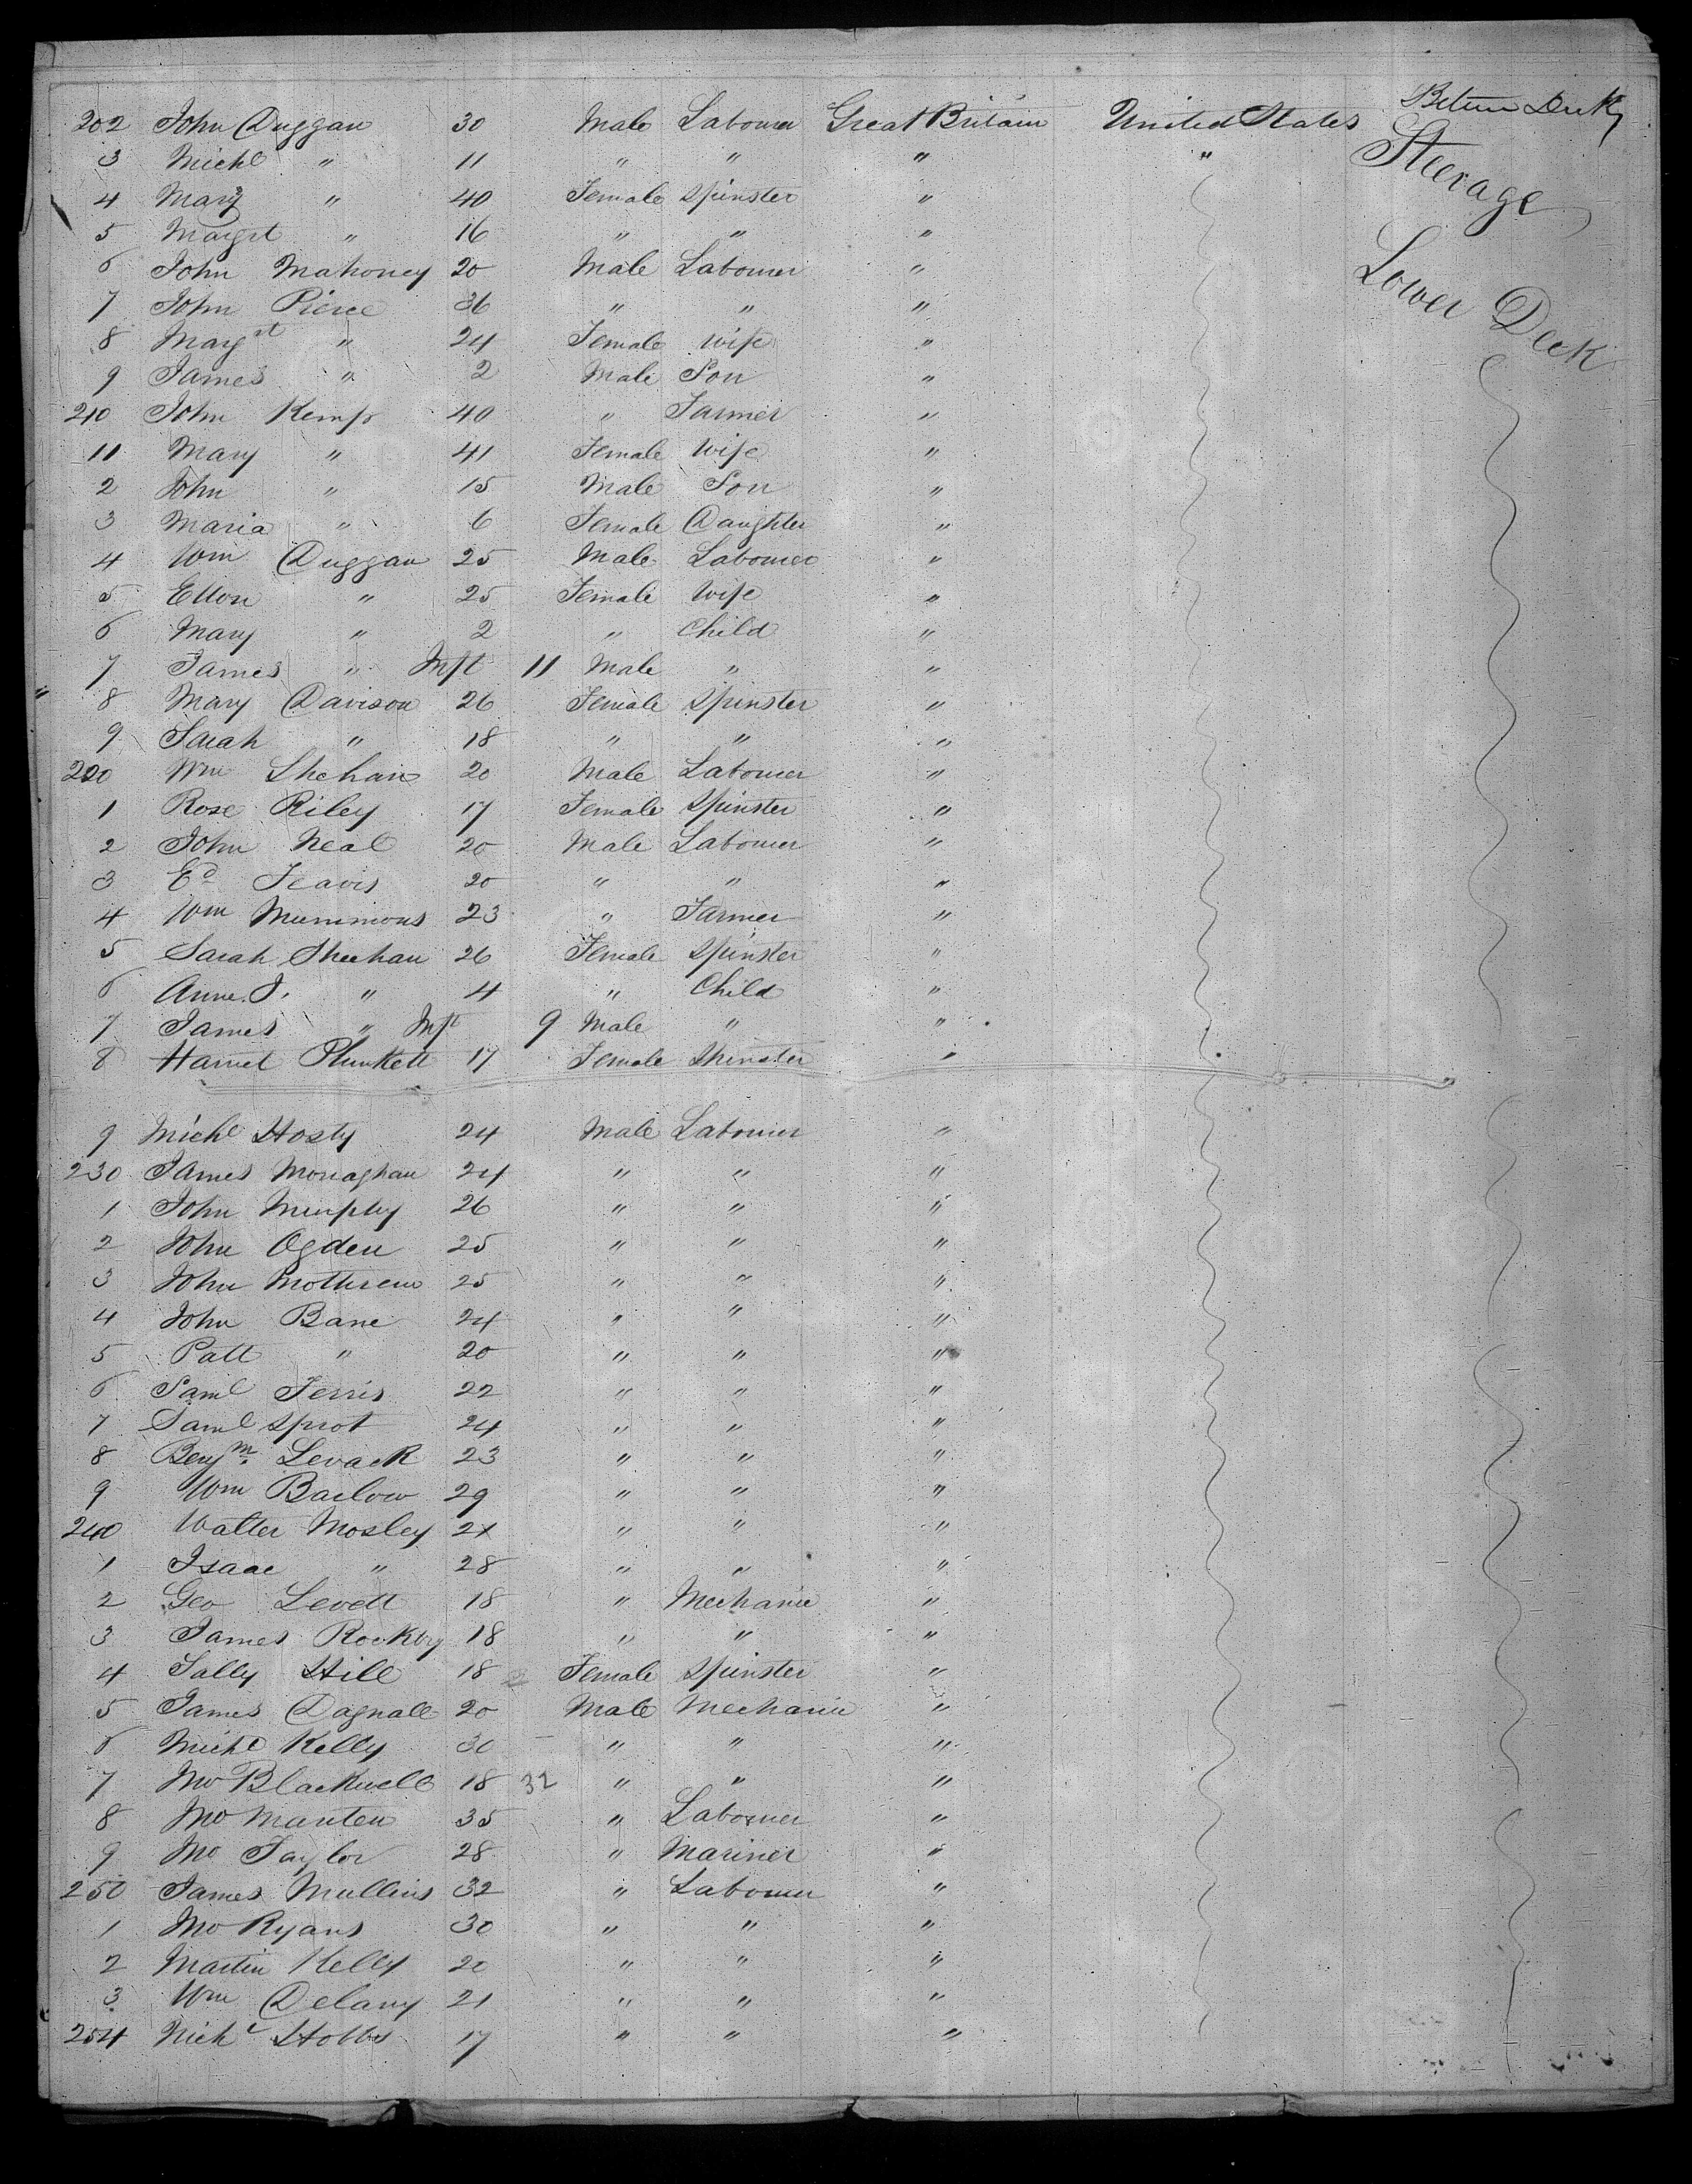 202 John Duggan 30 Male Labourer Great Britain United States Between Decks
3 Michl " 11 " " " " Steerage
4 Mary " 40 Female Spinster "
5 Margrt " 16 " " "
6 John Mahoney 20 Male Labourer " Lower Deck
7 John Pierce 36 " " "
8 Margrt " 24 Female Wife "
9 James " 2 Male Son "
210 John Kemp 40 " Farmer "
11 Mary " 41 Female Wife "
2 John " 15 Male Son "
3 Maria " 6 Female Daughter "
4 Wm Duggan 25 Male Labourer "
5 Ellen " 25 Female Wife "
6 Mary " 2 " Child "
7 James " Inft 11 Male " "
" 8 Mary Davison 26 Female Spinster "
9 Sarah " 18 " " "
220 Wm Shehan 20 Male Labourer "
1 Rose Riley 17 Female Spinster "
2 John Neal 20 Male Labourer "
3 Ed 20 " " "
4 Wm Mummons 23 " Farmer "
5 Sarah Sheehan 26 Female Spinster "
6 Anne. J. " 4 " Child "
7 James " Inft 9 Male " "
8 Harriet Plunkett 17 Female Spinster "
9 Michl Hosty 24 Male Labourer "
230 James Monaghan 24 " " "
1 John Murphy 26 " " "
2 John Ogden 25 " " "
3 John 25 " " "
4 John Bane 24 " " "
5 Patt " 20 " " "
6 Saml Ferris 22 " " "
7 Saml Sprot 24 " " "
8 Benjm. Levack 23 " " "
9 Wm Barlow 29 " " "
240 Walter Mosley 2x " " "
1 Isaac " 28 " " "
2 Geo Levett 18 " Mechanic "
3 James Rockby 18 " " "
4 Sally Hill 18 Female Spinster "
5 James Dagnall 20 Male Mechanic "
6 Michl Kelly 30 " " "
7 Jno Blackwell 18 32 " " "
8 Jno Manten 35 " Labourer "
9 Jno Taylor 28 " Mariner "
250 James Mullins 32 " Labourer "
1 Jno Ryans 30 " " "
2 Martin Kelly 20 " " "
3 Wm Delany 21 " " "
254 Nichl Hobbs 17 " " "